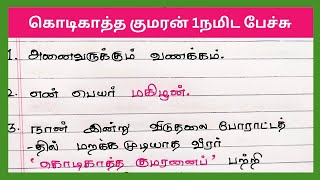 கொடிகாத்த குமரன் 1நமிட பேச்சு
1. அனைவருக்கும் வணக்கம்.
2. என் பெயர் மகிழன்.
3. நான் இன்று விடுதலை போராட்டத்
-தில் மறக்கமுடியாத வீரர்
'கொடிகாத்த குமரனைப்' பற்றி